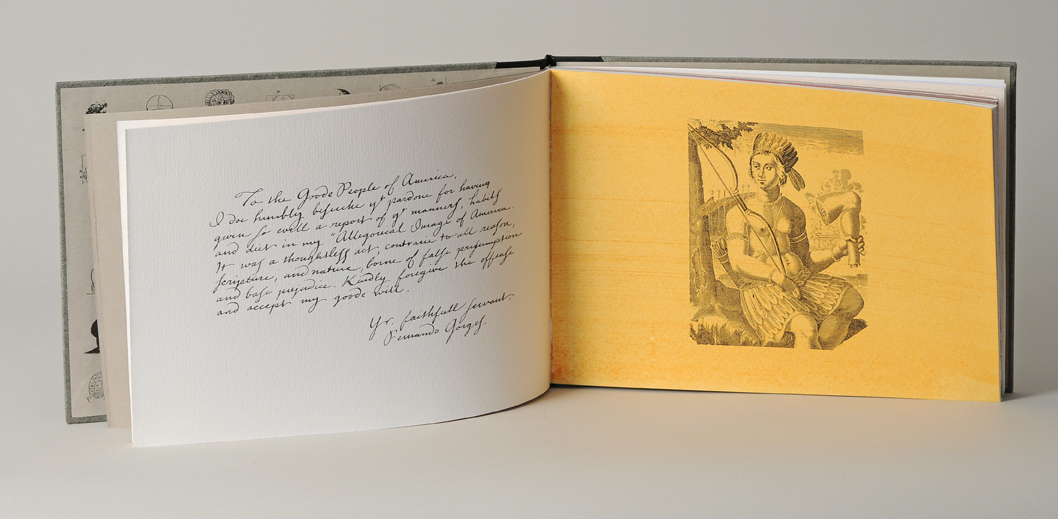 To the Goode People of America,
I doe humbly beſeeche yr pardone for having
given ſo evill a report of yr manners, habits
and diet in my "Allegorical Image of America
It was a thoughtleſs act contrarie to all reaſon,
ſcripture, and nature, borne of falſe preſumption
and baſe prejudice. Kindly foregive the offenſe
and accept my goode will.
Yr. faithfull ſervant.
Fernando Gorges.